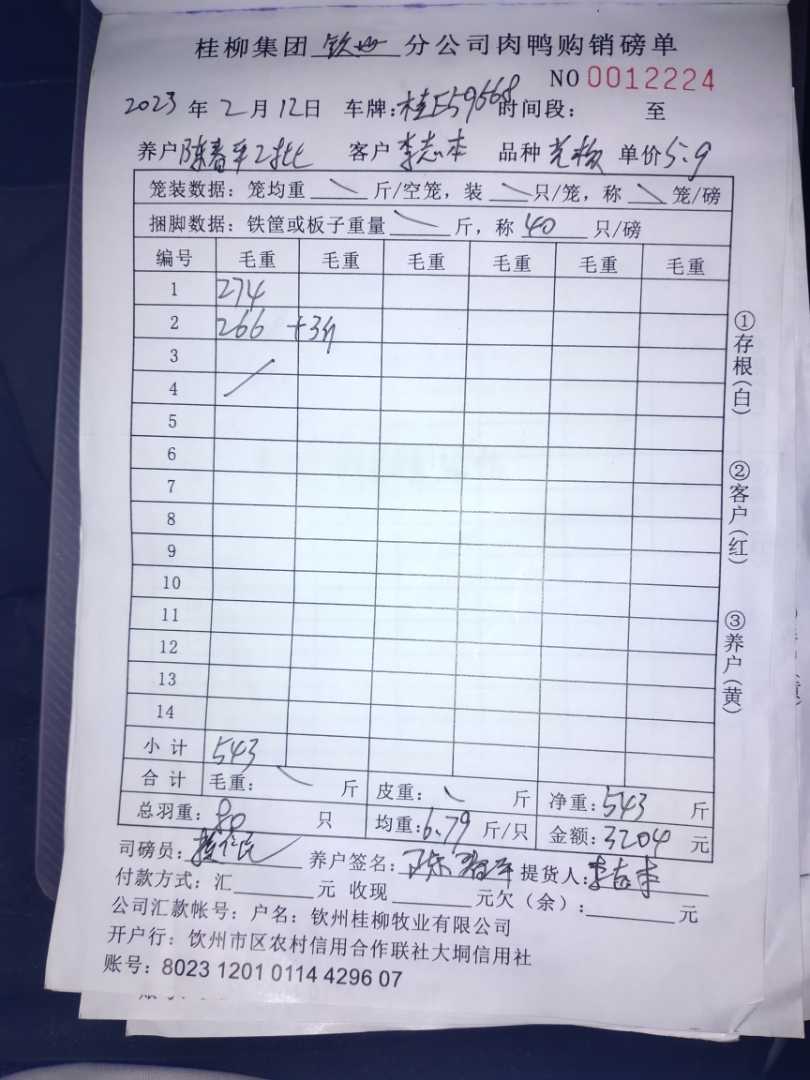 桂柳集团 钦州 分公司肉鸭购销磅单
NO 0012224
2023 年 2 月 12 日 车牌:桂E59668 时间段: 至
养户 陈春平2批 客户 李志本 品种 单价 5.9
笼装数据: 笼均重 \ 斤/空笼, 装 \ 只/笼, 称 \ 笼/磅
捆脚数据: 铁筐或板子重量 \ 斤, 称 40 只/磅
编号 毛重 毛重 毛重 毛重 毛重 毛重
1 274
2 266 +3斤
3
4
5
6
7
8
9
10
11
12
13
14
小计 543
合计 毛重: \ 斤 皮重: \ 斤 净重: 543 斤
总羽重: 80 只 均重: 6.79 斤/只 金额: 3204 元
司磅员: 养户签名: 陈春平 提货人:
付款方式: 汇 元 收现 元欠(余): 元
公司汇款帐号: 户名: 钦州桂柳牧业有限公司
开户行: 饮州市区农村信用合作联社大垌信用社
账号: 8023 1201 0114 4296 07
①存根(白)
②客户(红)
③养户(黄)